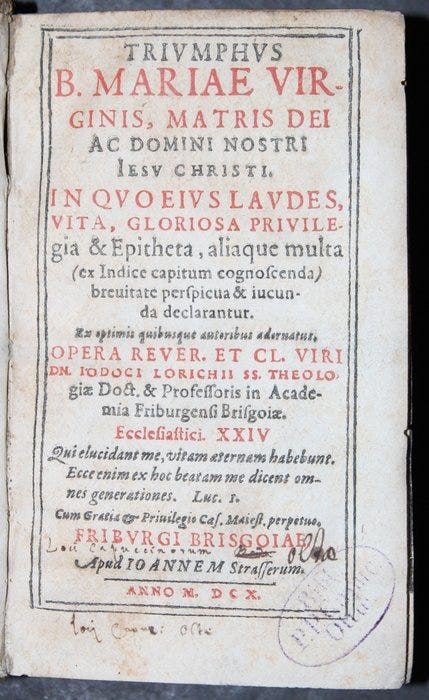 TRIVMPHVS
B. MARIAE VIR-
GINIS, MATRIS DEI
AC DOMINI NOSTRI
IESV CHRISTI.
IN QVO EIVS LAVDES,
VITA, GLORIOSA PRIVILE-
gia & Epitheta, aliaque multa
(ex Indice capitum cognoſcenda)
breuitate perſpicua & iucun-
da declarantur.
Ex optimis quibusque autoribus adornatus.
OPERA REVER. ET CL. VIRI
DN. IODOCI LORICHII SS. THEOLO-
giæ Doct. & Profeſſoris in Acade-
mia Friburgenſi Briſgoiæ.
Eccleſiaſtici. XXIV
Qui elucidant me, vitam æternam habebunt.
Ecce enim ex hoc beatam me dicent om-
nes generationes. Luc. 1.
Cum Gratia & Privilegio Cæſ. Maieſt. perpetuo.
FRIBVRGI BRISGOIAE
Loci Capuccinorum Olta
Apud IOANNEM Straſſerum.
ANNO M. DC X.